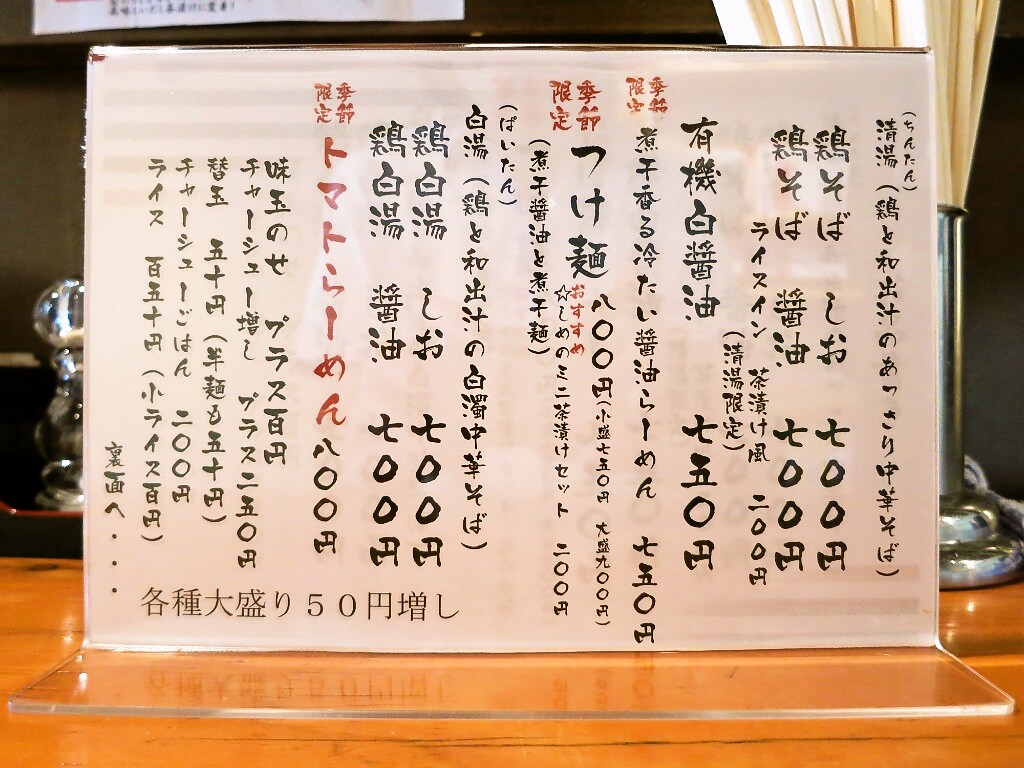 (ちんたん)
清湯(鶏と和出汁のあっさり中華そば)
鶏そば しお 七〇〇円
鶏そば 醤油 七〇〇円
ライスイン 茶漬け風 二〇〇円
(清湯限定)
有機白醤油 七五〇円
季節限定
煮干香る冷たい醤油らーめん 七五〇円
季節限定
つけ麺 八〇〇円(小盛七五〇円 大盛九〇〇円)
おすすめ
☆しめのミニ茶漬けセット 二〇〇円
(煮干醤油と煮干麺)
(ぱいたん)
白湯(鶏と和出汁の白濁中華そば)
鶏白湯 しお 七〇〇円
鶏白湯 醤油 七〇〇円
季節限定
トマトらーめん 八〇〇円
味玉のせ プラス百円
チャーシュー増し プラス二五〇円
替玉 五十円(半麺も五十円)
チャーシューごはん 二〇〇円
ライス 百五十円(小ライス百円)
裏面へ・・・
各種大盛り50円増し